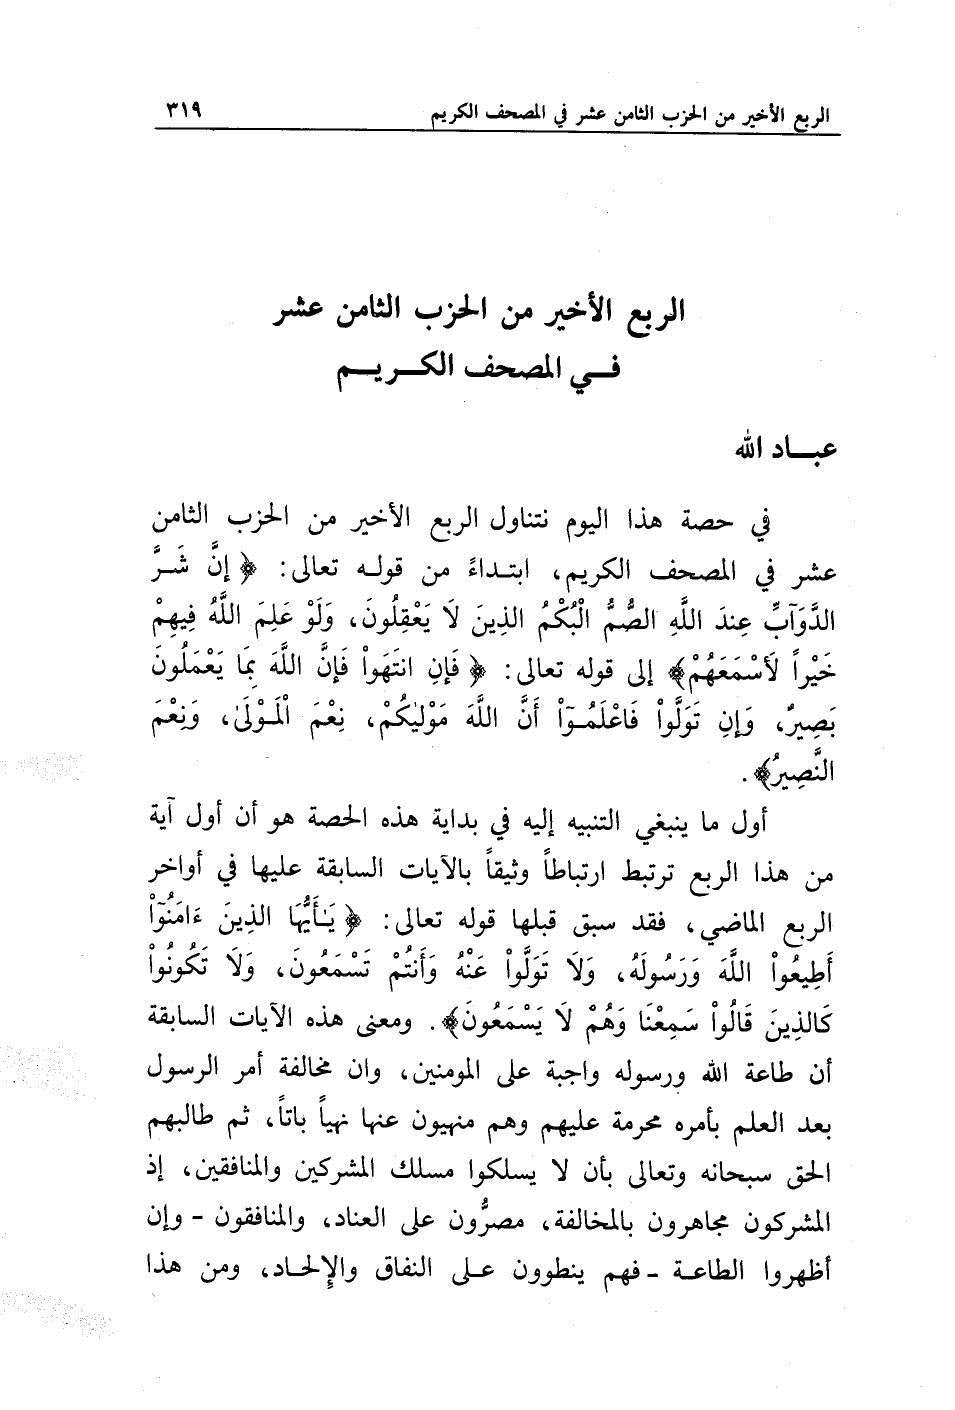 الربع الأخير من الحزب الثامن عشر في المصحف الكريم ٣١٩
الربع الأخير من الحزب الثامن عشر
فـي المصحف الكـريـم
عبـاد الله
في حصة هذا اليوم نتناول الربع الأخير من الحزب الثامن
عشر في المصحف الكريم، ابتـداءً من قولـه تعالى: ﴿ إِنَّ شَـرَّ
الدَّوَآبِّ عِندَ اللَّهِ الصُّمُّ الْبُكْمُ الذِينَ لَا يَعْقِلُونَ، وَلَوْ عَلِمَ اللَّهُ فِيهِمْ
خَيْراً لَأَسْمَعَهُمْ﴾ إلى قوله تعالى: ﴿ فَإِنِ انتَهَواْ فَإِنَّ اللَّهَ بِمَا يَعْمَلُونَ
بَصِيرٌ، وَإِنِ تَوَلَّواْ فَاعْلَمُـوٓاْ أَنَّ اللَّهَ مَوْلٰيكُمْ، نِعْمَ الْمَـوْلَىٰ، وَنِعْمَ
النَّصِيرُ﴾.
أول ما ينبغي التنبيه إليه في بداية هذه الحصة هو أن أول آية
من هذا الربع ترتبط ارتباطاً وثيقاً بالآيات السابقة عليها في أواخر
الربع الماضي، فقد سبق قبلها قوله تعالى: ﴿ يَـٰأَيُّهَا الذِينَ ءَامَنُوٓاْ
أَطِيعُواْ اللَّهَ وَرَسُولَهُ، وَلَا تَوَلَّواْ عَنْهُ وَأَنتُمْ تَسْمَعُونَ، وَلَا تَكُونُواْ
كَالذِينَ قَالُواْ سَمِعْنَا وَهُمْ لَا يَسْمَعُونَ﴾. ومعنى هذه الآيات السابقة
أن طاعة الله ورسوله واجبة على المومنين، وان مخالفة أمر الرسول
بعد العلم بأمره محرمة عليهم وهم منهيون عنها نهياً باتاً، ثم طالبهم
الحق سبحانه وتعالى بأن لا يسلكوا مسلك المشركين والمنافقين، إذ
المشركون مجاهرون بالمخالفة، مصرُّون على العناد، والمنافقون - وإن
أظهروا الطاعـة - فهم ينطوون عـلى النفاق والإلحـاد، ومن هذا